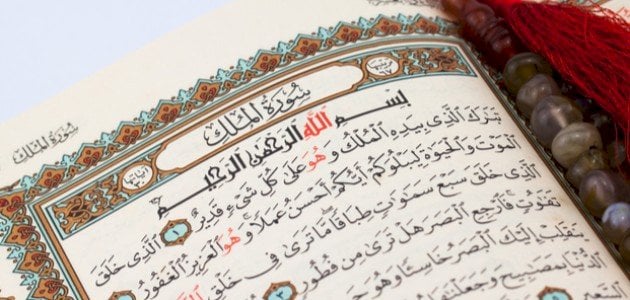 سُورَةُ المُلْك
سُورَةُ المُلْكِ
آياتها ٣٠
بِسْمِ اللهِ الرَّحْمٰنِ الرَّحِيمِ
تَبَٰرَكَ ٱلَّذِى بِيَدِهِ ٱلْمُلْكُ وَهُوَ عَلَىٰ كُلِّ شَىْءٍ قَدِيرٌ ١ ٱلَّذِى خَلَقَ
ٱلْمَوْتَ وَٱلْحَيَوٰةَ لِيَبْلُوَكُمْ أَيُّكُمْ أَحْسَنُ عَمَلًا وَهُوَ ٱلْعَزِيزُ ٱلْغَفُورُ
ٱلَّذِى خَلَقَ سَبْعَ سَمَٰوَٰتٍ طِبَاقًا مَّا تَرَىٰ فِى خَلْقِ
تَفَٰوُتٍ فَٱرْجِعِ ٱلْبَصَرَ هَلْ تَرَىٰ مِن فُطُورٍ ٣
يَنقَلِبْ إِلَيْكَ ٱلْبَصَرُ خَاسِئًا وَهُوَ
ٱلدُّنْيَا بِمَصَٰبِيحَ وَجَعَلْنَٰهَا